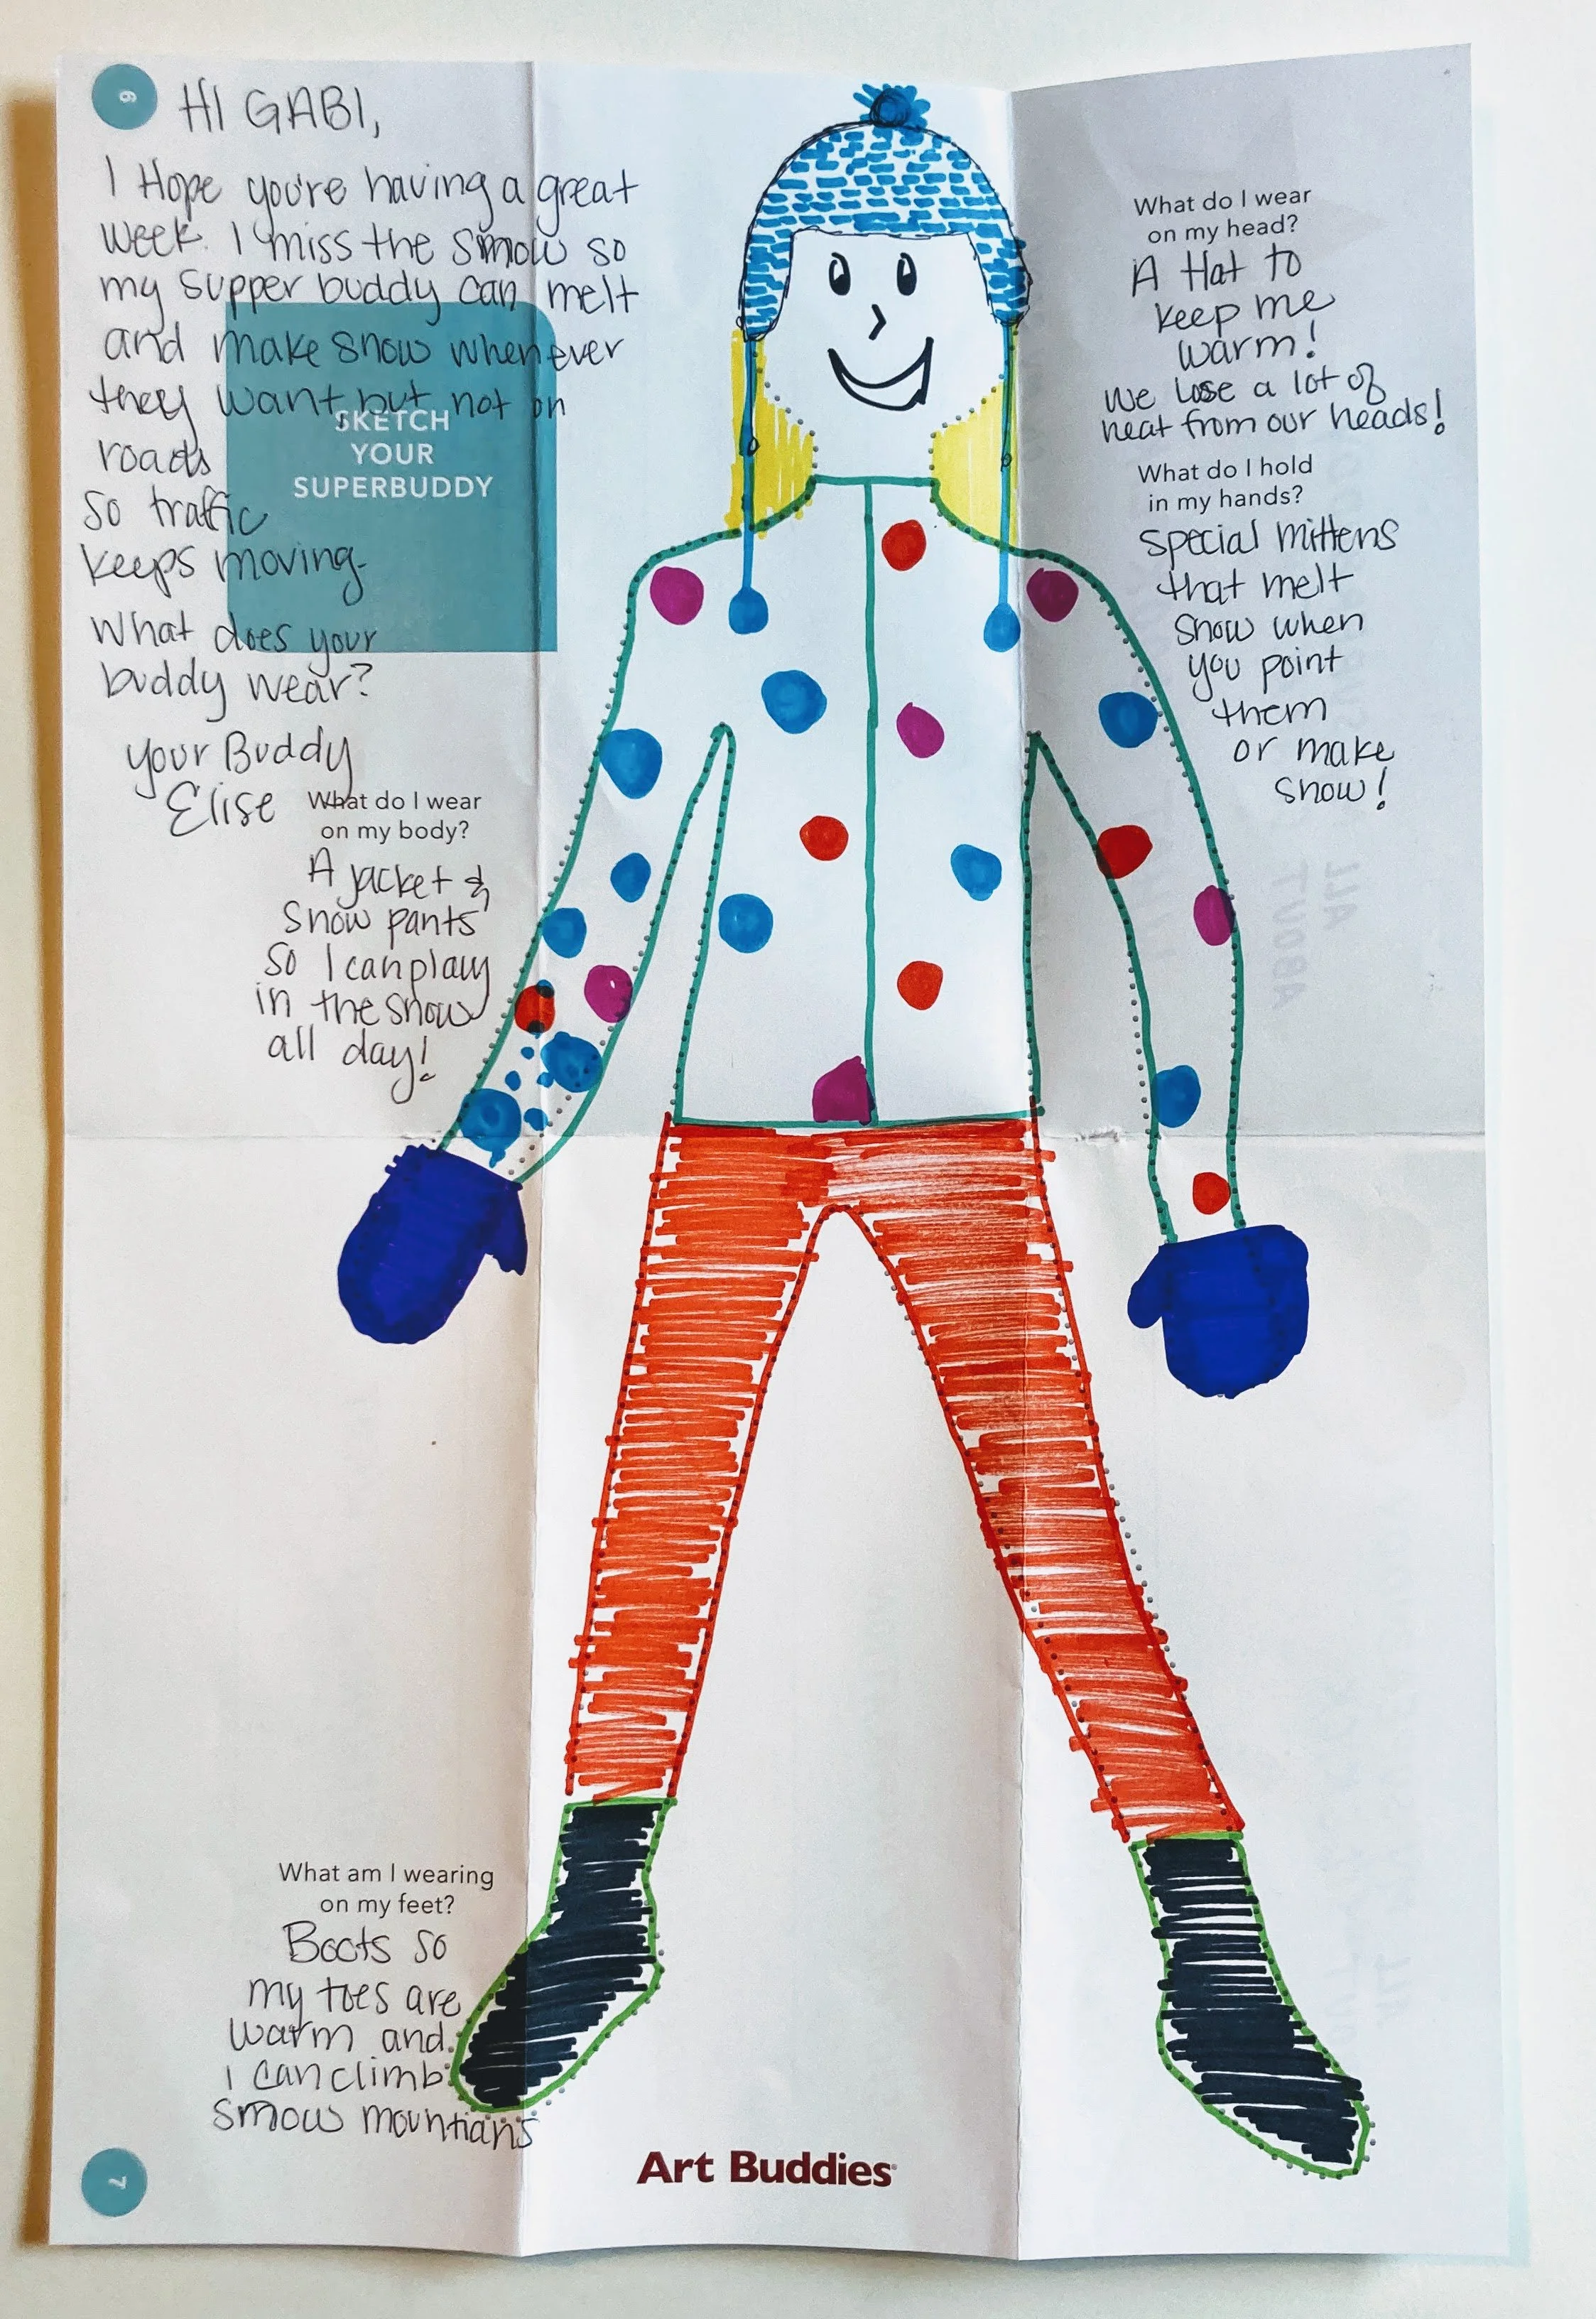 6
HI GABI,
I Hope you're having a great
week. I miss the snow so
my supper buddy can melt
and make snow whenever
they want but not on
roads
so traffic
keeps moving.
What does your
buddy wear?
your Buddy
Elise
SKETCH
YOUR
SUPERBUDDY
What do I wear
on my body?
A jacket &
Snow pants
so I can play
in the snow
all day!
What do I wear
on my head?
A Hat to
keep me
warm!
We lose a lot of
heat from our heads!
What do I hold
in my hands?
special mittens
that melt
snow when
you point
them
or make
snow!
What am I wearing
on my feet?
Boots so
my toes are
warm and
I can climb
snow mountians
7
Art Buddies
ALL
ABOUT